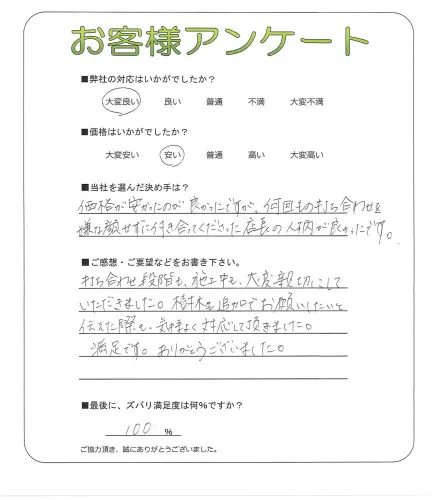 お客様アンケート
■弊社の対応はいかがでしたか？
大変良い 良い 普通 不満 大変不満
■価格はいかがでしたか？
大変安い 安い 普通 高い 大変高い
■当社を選んだ決め手は？
価格が安かったのが良かったですが、何回もの打ち合わせを
嫌な顔せずに付き合ってくださった店長の人柄が良かったです。
■ご感想・ご要望などをお書き下さい。
打ち合わせ段階も、施工中も、大変親切にして
いただきました。樹木も追加でお願いしたいと
伝えた際も、気持よく対応して頂きました。
満足です。ありがとうございました。
■最後に、ズバリ満足度は何％ですか？
100 ％
ご協力頂き、誠にありがとうございました。